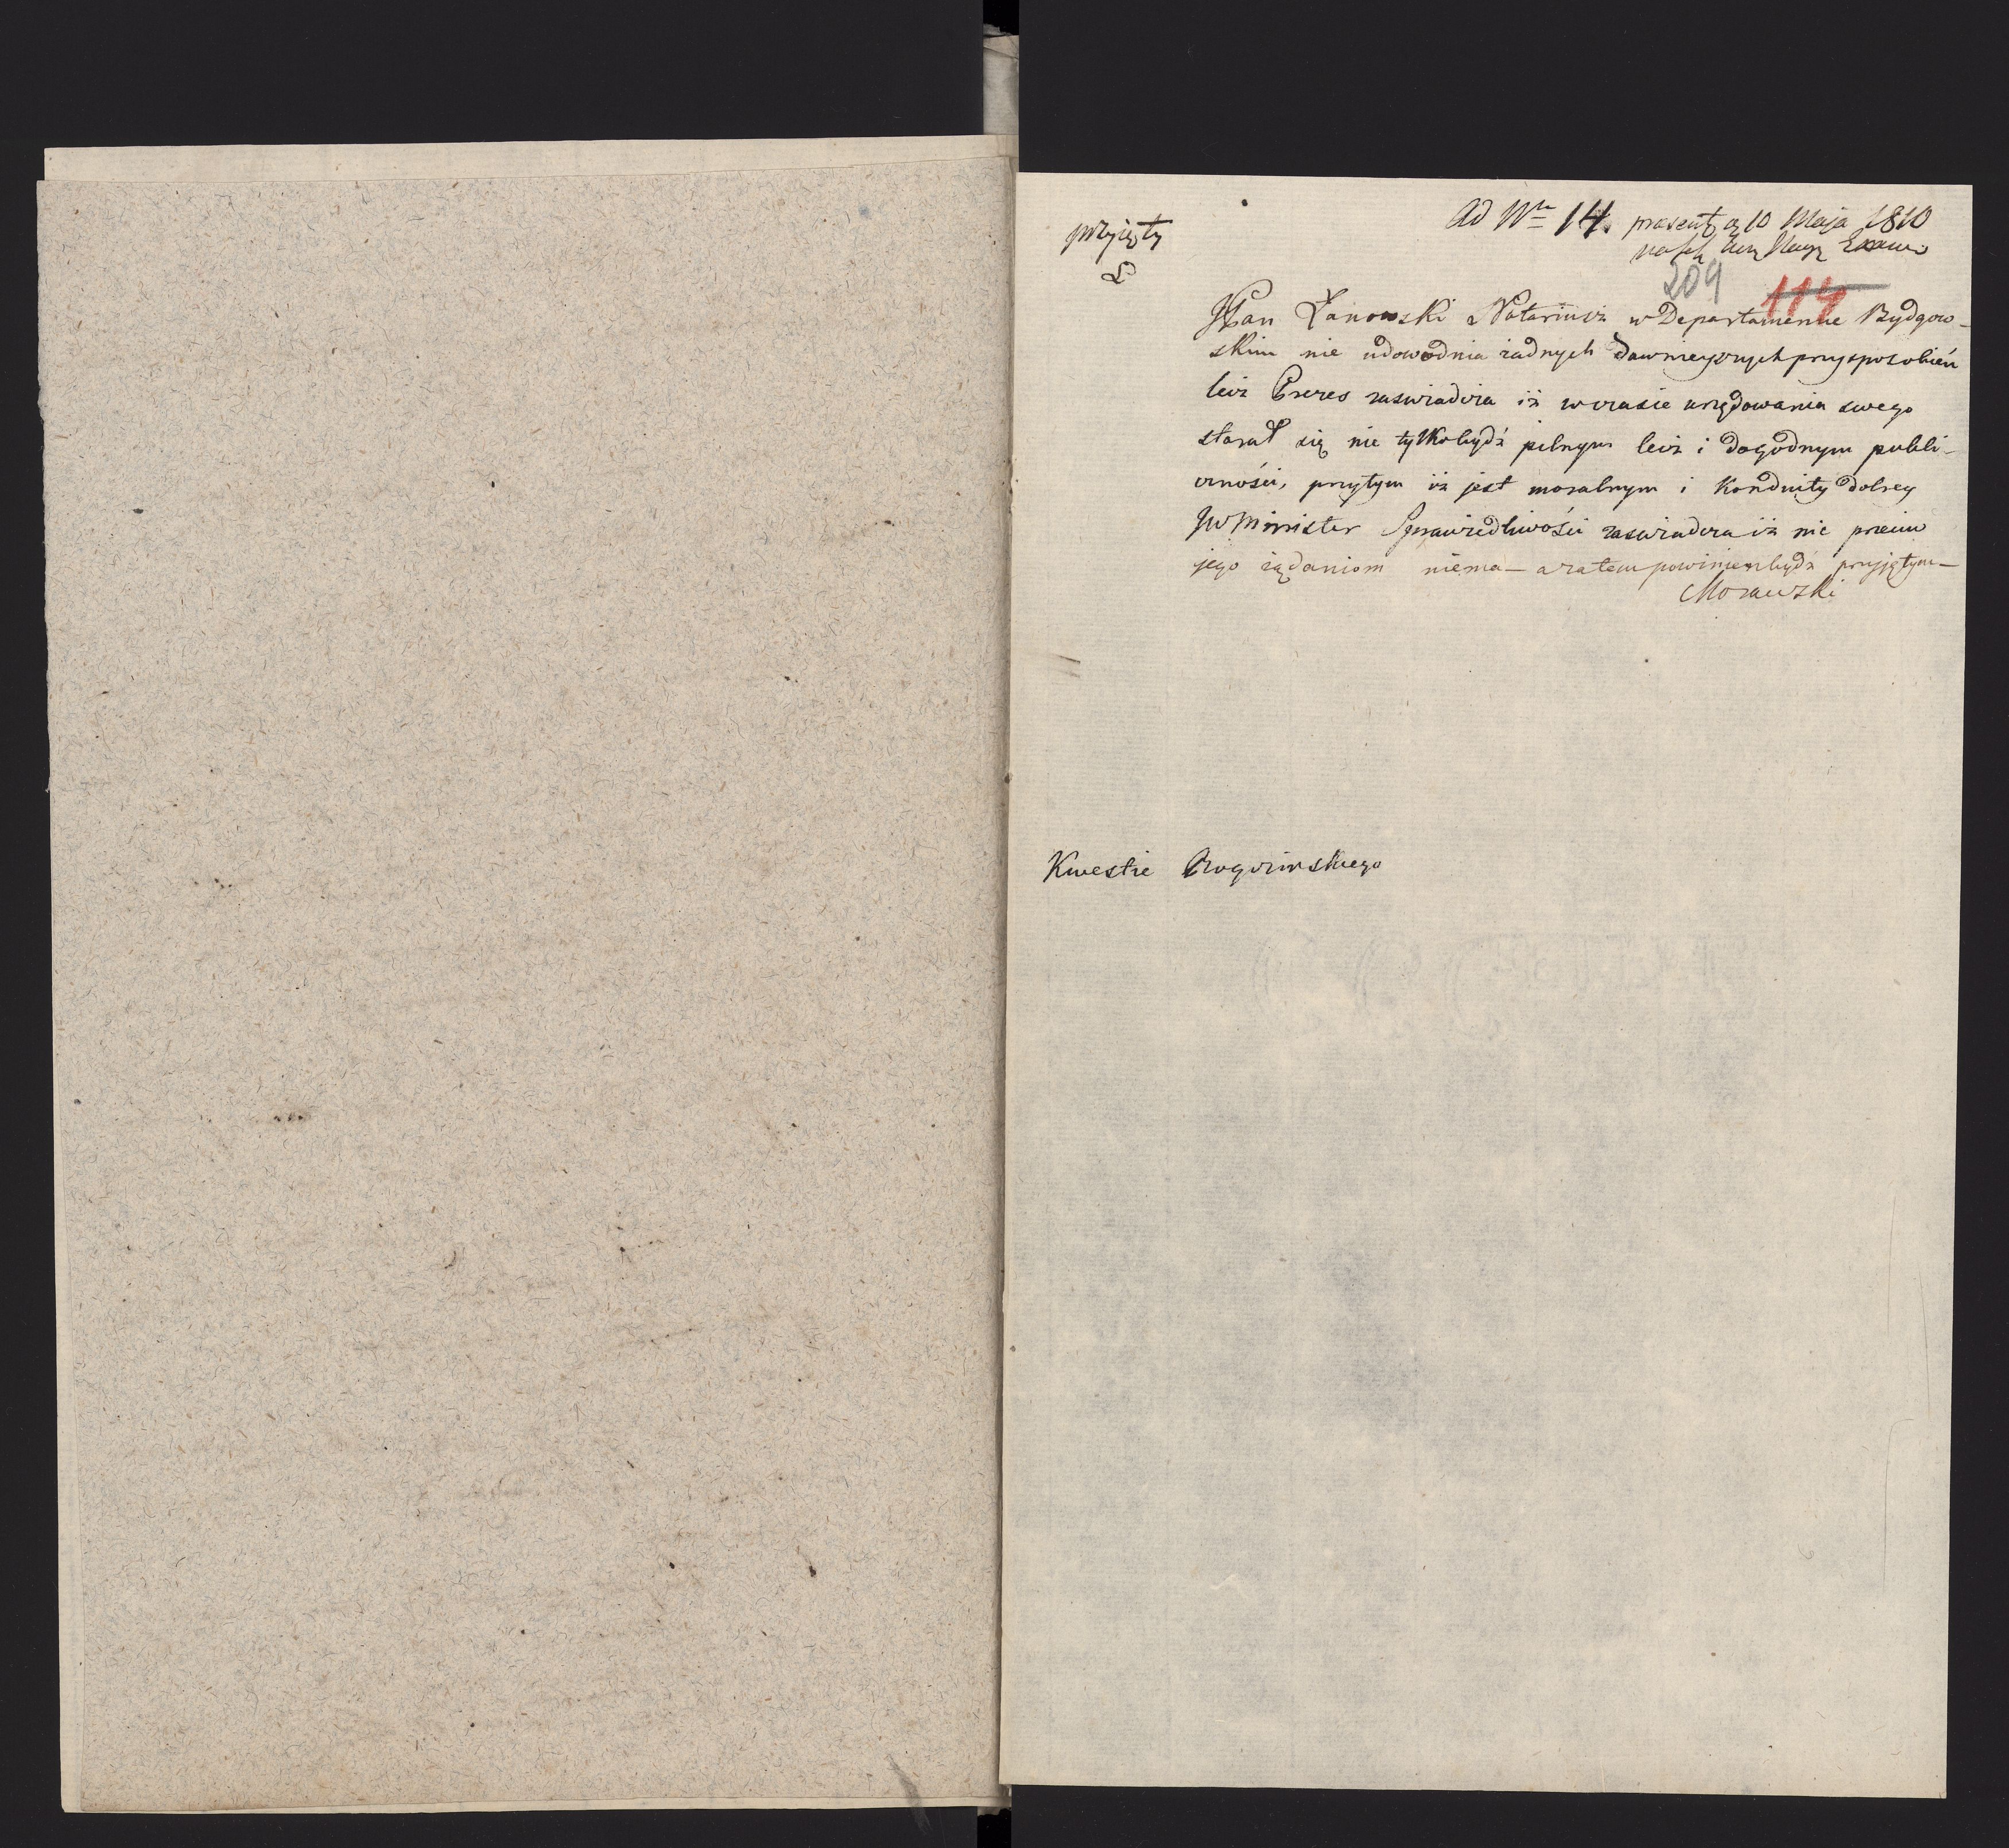 Ad Nr 14. praesent. 10 Maja 1810
przyięty
209
114
JPan Łanowski Notariusz w Departamencie Bydgow-
skim nie udowodnia żadnych dawnieyszych przysposobień
lecz Prezes zaswiadcza iż w czasie urzędowania swego
starał się nie tylko bydź pilnym lecz i dogodnym publi-
czności, przytym iż jest moralnym i Konduity dobrey
JW Minister Sprawiedliwości zaswiadcza iż nic przeciw
jego żądaniom niema – a zatem powinien bydź przyjętym –
Morawski
Kwestie